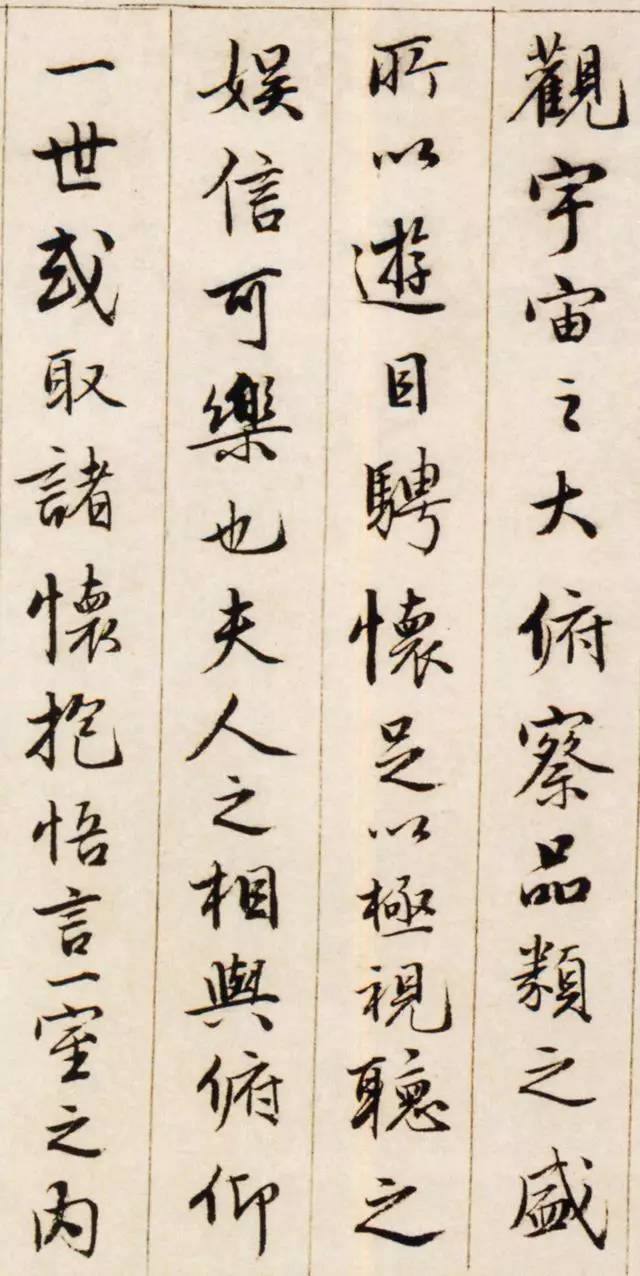 觀宇宙之大俯察品類之盛
所以遊目騁懷足以極視聽之
娛信可樂也夫人之相與俯仰
一世或取諸懷抱悟言一室之内